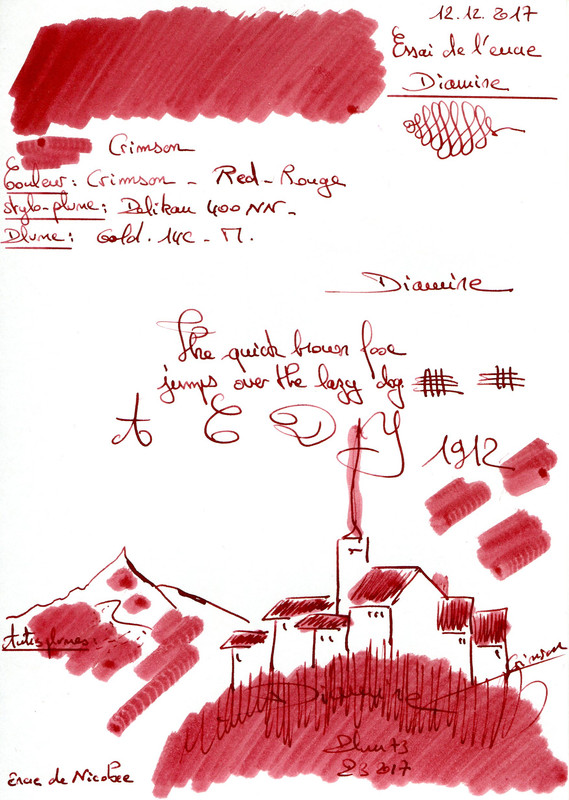 12.12.2017
Essai de l'encre
Diamine
Crimson
Couleur: Crimson - Red-Rouge
stylo-plume: Pelikan 400 NN-
Plume: Gold. 14C - M.
Diamine
The quick brown fox
jumps over the lazy dog.
1912
Autres plumes:
Crimson
Diamine
2017
Encre de Nicolas